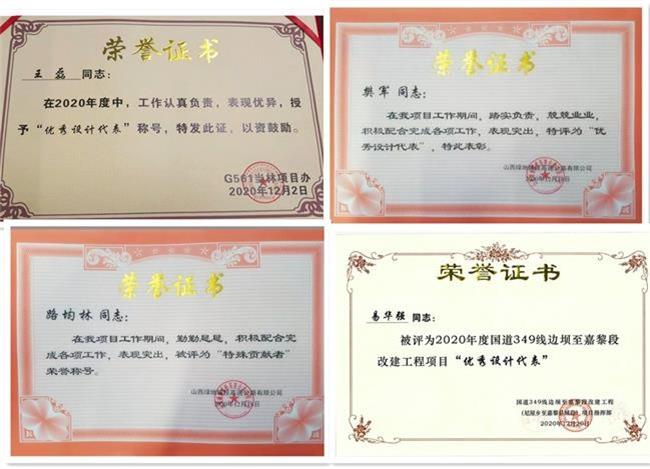 荣誉证书
王磊 同志：
在2020年度中，工作认真负责，表现优异，授
予“优秀设计代表”称号，特发此证，以资鼓励。
G561当林项目办
2020年12月2日
荣誉证书
樊军 同志：
在我项目工作期间，踏实负责，兢兢业业，
积极配合完成各项工作，表现突出，特评为“优
秀设计代表”，特此表彰。
荣誉证书
路均林 同志：
在我项目工作期间，勤勤恳恳，积极配合完
成各项工作，表现突出，被评为“特殊贡献者”
荣誉称号。
荣誉证书
易华强 同志：
被评为2020年度国道349线边坝至嘉黎段
改建工程项目“优秀设计代表”
国道349线边坝至嘉黎段改建工程
项目指挥部